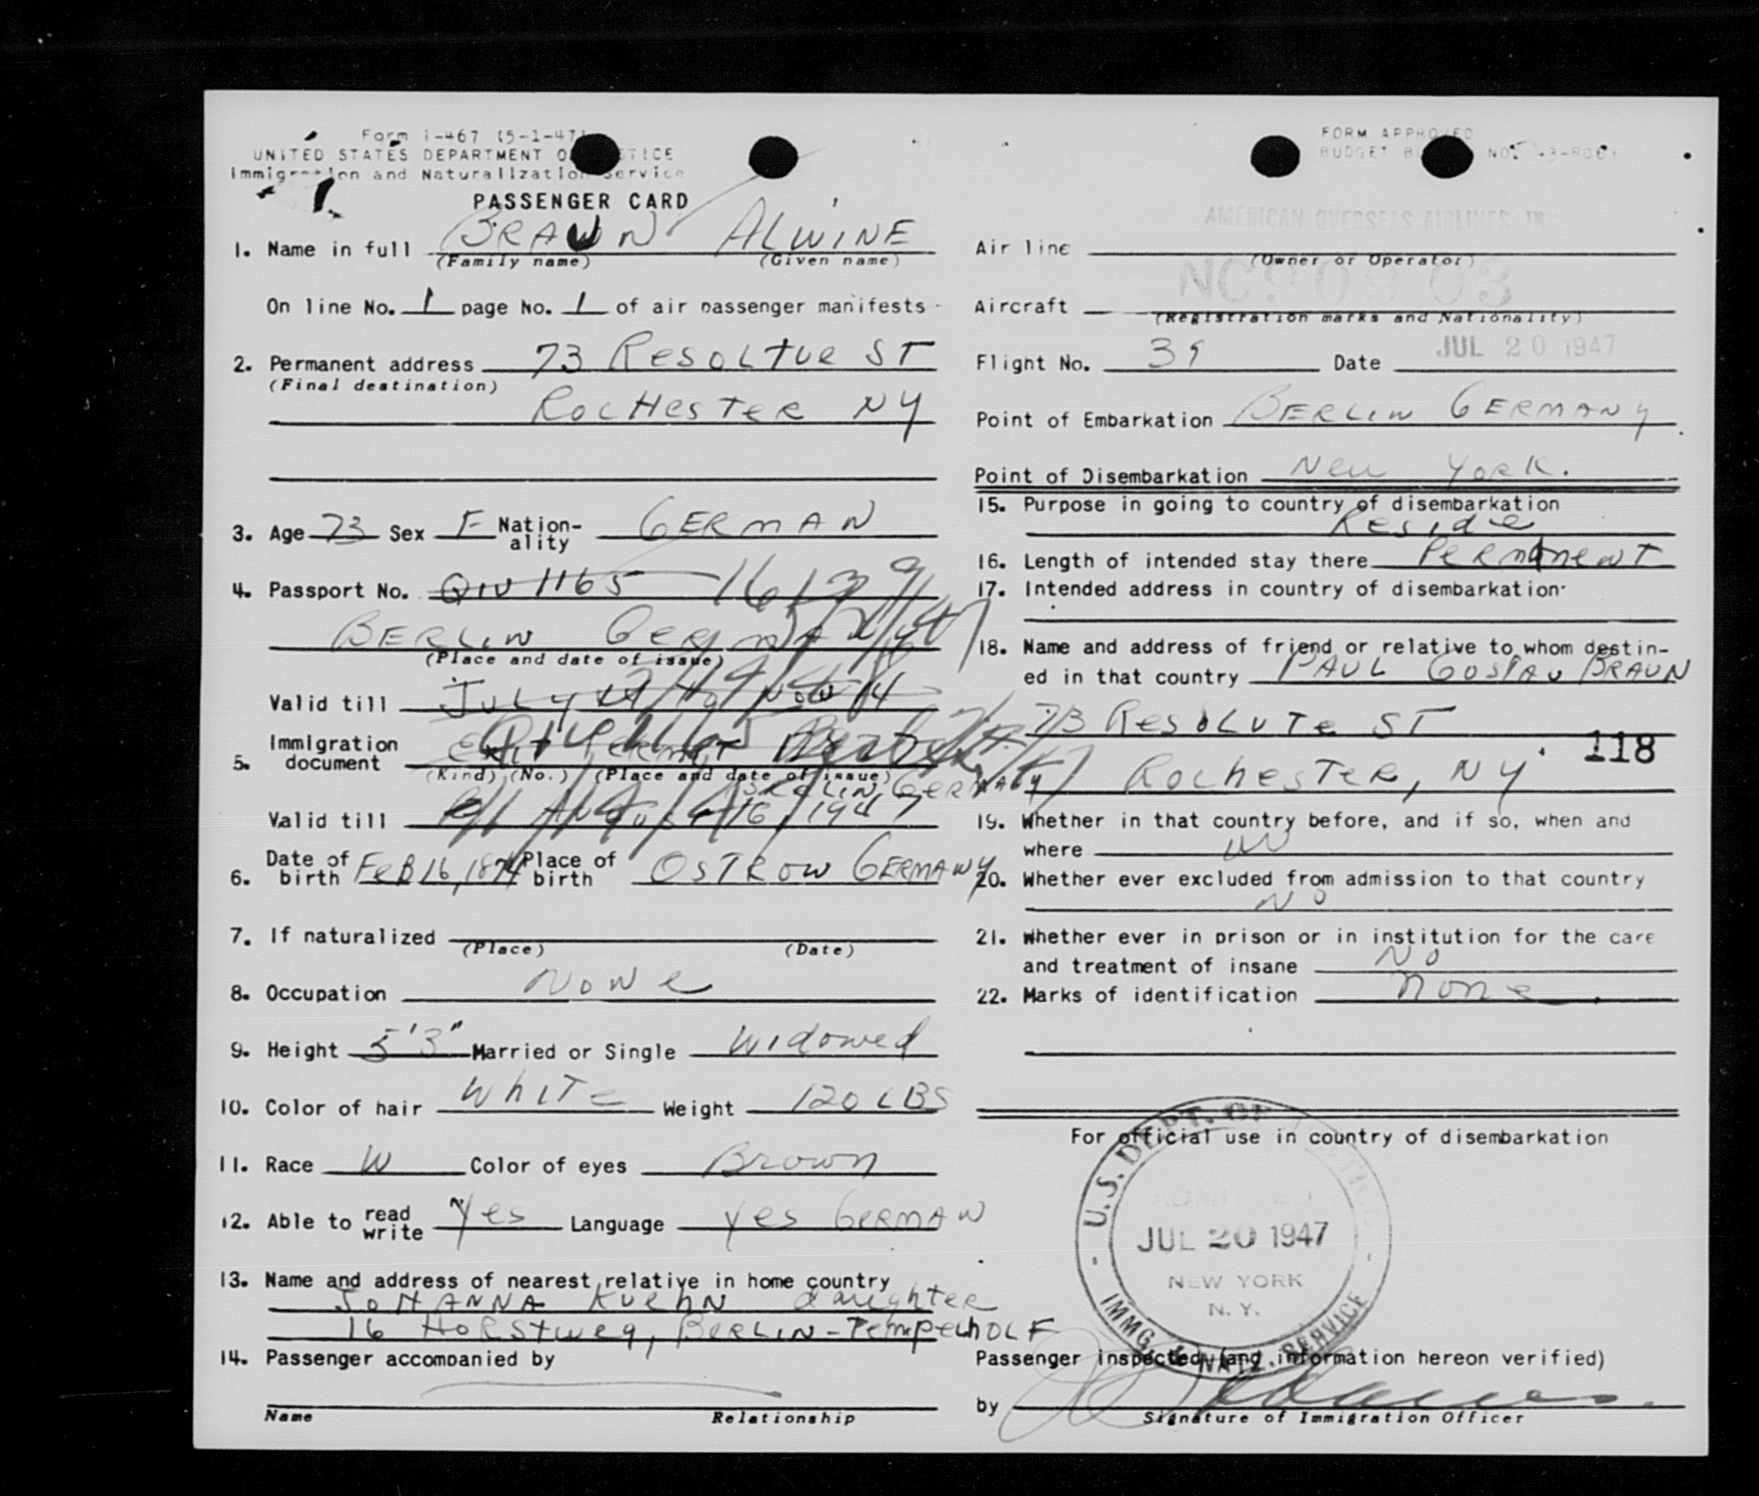 Form I-467 (5-1-47)
UNITED STATES DEPARTMENT O
Immigration and Naturalization Service
PASSENGER CARD
FORM APPROVED
BUDGET NO.
AMERICAN OVERSEAS AIRLINES, IN
1. Name in full BRAUN ALWINE
(Family name) (Given name)
On line No. 1 page No. 1 of air passenger manifests
2. Permanent address 73 RESOLTUE ST
(Final destination)
ROCHESTER NY
3. Age 73 Sex F Nation-ality GERMAN
4. Passport No. QIU 1165
BERLIN
(Place and date of issue)
Valid till JULY
5. Immigration document EXIT PERMIT
(Kind) (No.) (Place and date of issue)
BERLIN, GERMANY
Valid till 1947
6. Date of birth FEB 16, 1874 Place of birth OSTROW GERMANY
7. If naturalized
(Place) (Date)
8. Occupation NONE
9. Height 5'3" Married or Single Widowed
10. Color of hair WHITE Weight 120 LBS
11. Race W Color of eyes Brown
12. Able to read write Yes Language Yes GERMAN
13. Name and address of nearest relative in home country
JOHANNA KUEHN daughter
16 HORSTWEG, BERLIN-TEMPELHOLF
14. Passenger accompanied by
Name Relationship
Air line
(Owner or Operator)
Aircraft
(Registration marks and Nationality)
Flight No. 39 Date JUL 20 1947
Point of Embarkation BERLIN GERMANY
Point of Disembarkation New YORK.
15. Purpose in going to country of disembarkation
Reside
16. Length of intended stay there PERMANENT
17. Intended address in country of disembarkation
18. Name and address of friend or relative to whom destin-
ed in that country PAUL GUSTAV BRAUN
73 RESOLUTE ST
118
ROCHESTER, NY
19. Whether in that country before, and if so, when and
where
20. Whether ever excluded from admission to that country
NO
21. Whether ever in prison or in institution for the care
and treatment of insane NO
22. Marks of identification none
For official use in country of disembarkation
U.S. DEPT. OF
JUL 20 1947
NEW YORK
N. Y.
IMMG. & NATZ. SERVICE
Passenger inspected (and information hereon verified)
by
Signature of Immigration Officer